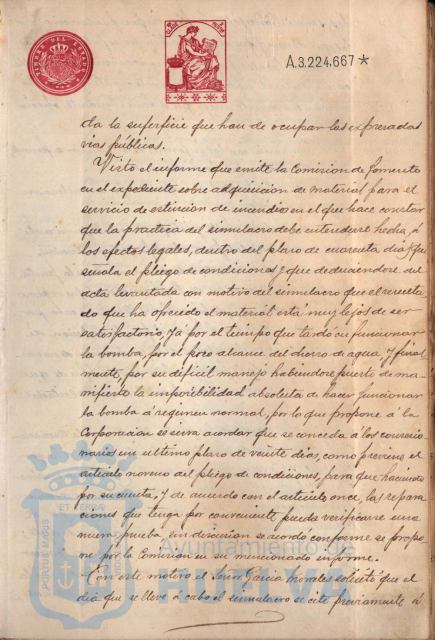 TIMBRE DEL ESTADO
A.3.224.667*
da la superficie que han de ocupar las expresadas
vias públicas.
Visto el informe que emite la Comision de fomento
en el expediente sobre adquisicion de material para el
servicio de estincion de incendios en el que hace constar
que la practica del simulacro debe entenderse hecha, á
los efectos legales, dentro del plazo de cuarenta dias que
señala el pliego de condiciones y que deduciendose del
acta levantada con motivo del simulacro que el resulta-
do que ha ofrecido el material está muy lejos de ser
satisfactorio, yá por el tiempo que tardó en funcionar
la bomba, por el poco alcance del chorro de agua, y final
mente, por su dificil manejo habiendose puesto de ma-
nifiesto la imposibilidad absoluta de hacer funcionar
la bomba á regimen normal, por lo que propone á la
Corporacion se sirva acordar que se conceda á los concesio-
narios un ultimo plazo de veinte dias, como previene el
articulo noveno del pliego de condiciones, para que haciendo
por su cuenta, y de acuerdo con el articulo once, las repara-
ciones que tenga por conveniente pueda verificarse una
nueva prueba, sin discusion se acordó conforme se propo-
ne por la Comision en su mencionado informe.
Con este motivo el Señor Garcia Morales solicitó que el
dia que se lleve á cabo el simulacro se cite previamente á
PORTUS MARIS
ET TERRA
Ayuntamiento de